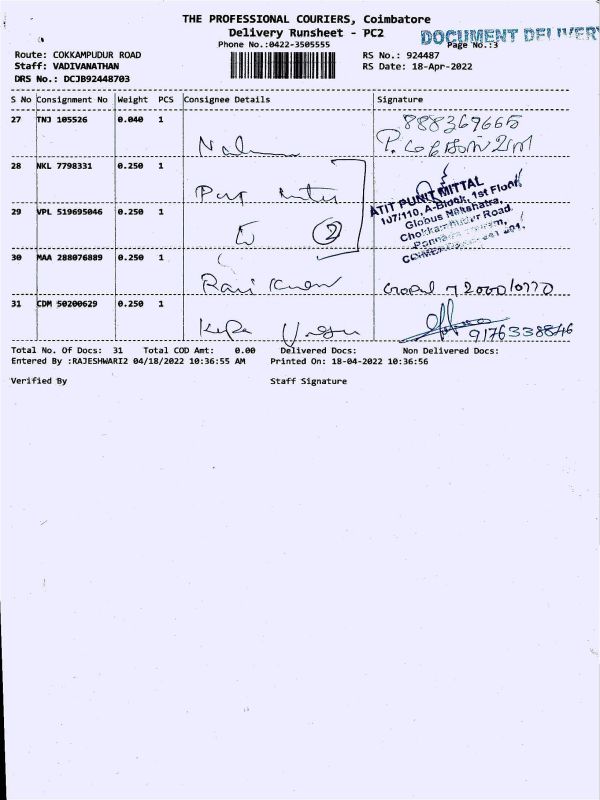 THE PROFESSIONAL COURIERS, Coimbatore
Delivery Runsheet - PC2
DOCUMENT DELIVERY
Phone No.:0422-3505555
Page No.:3
Route: COKKAMPUDUR ROAD
RS No.: 924487
Staff: VADIVANATHAN
RS Date: 18-Apr-2022
DRS No.: DCJB92448703
S No Consignment No Weight PCS Consignee Details Signature
27 TNJ 105526 0.040 1
888369665
28 NKL 7798331 0.250 1
ATIT PUNIT MITTAL
107/110, A-Block, 1st Floor,
Globus Nakshatra,
Chokkampudur Road,
29 VPL 519695046 0.250 1
2
30 MAA 288076889 0.250 1
Ravi Kumar
31 CDM 50200629 0.250 1
9176338846
Total No. Of Docs: 31 Total COD Amt: 0.00 Delivered Docs: Non Delivered Docs:
Entered By :RAJESHWARI2 04/18/2022 10:36:55 AM Printed On: 18-04-2022 10:36:56
Verified By Staff Signature